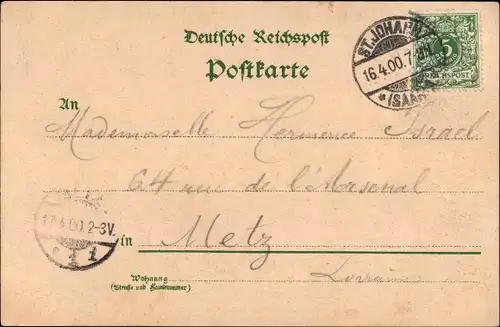 Deutsche Reichspost
Postkarte
ST. JOHANN
16.4.00.7-8N.
* (SAAR)
5
REICHSPOST
An
Mademoiselle Hermence Israel
64 rue de l'Arsenal
17.4.00.2-3V.
in Metz
Lorraine
Wohnung
(Straße und Hausnummer)